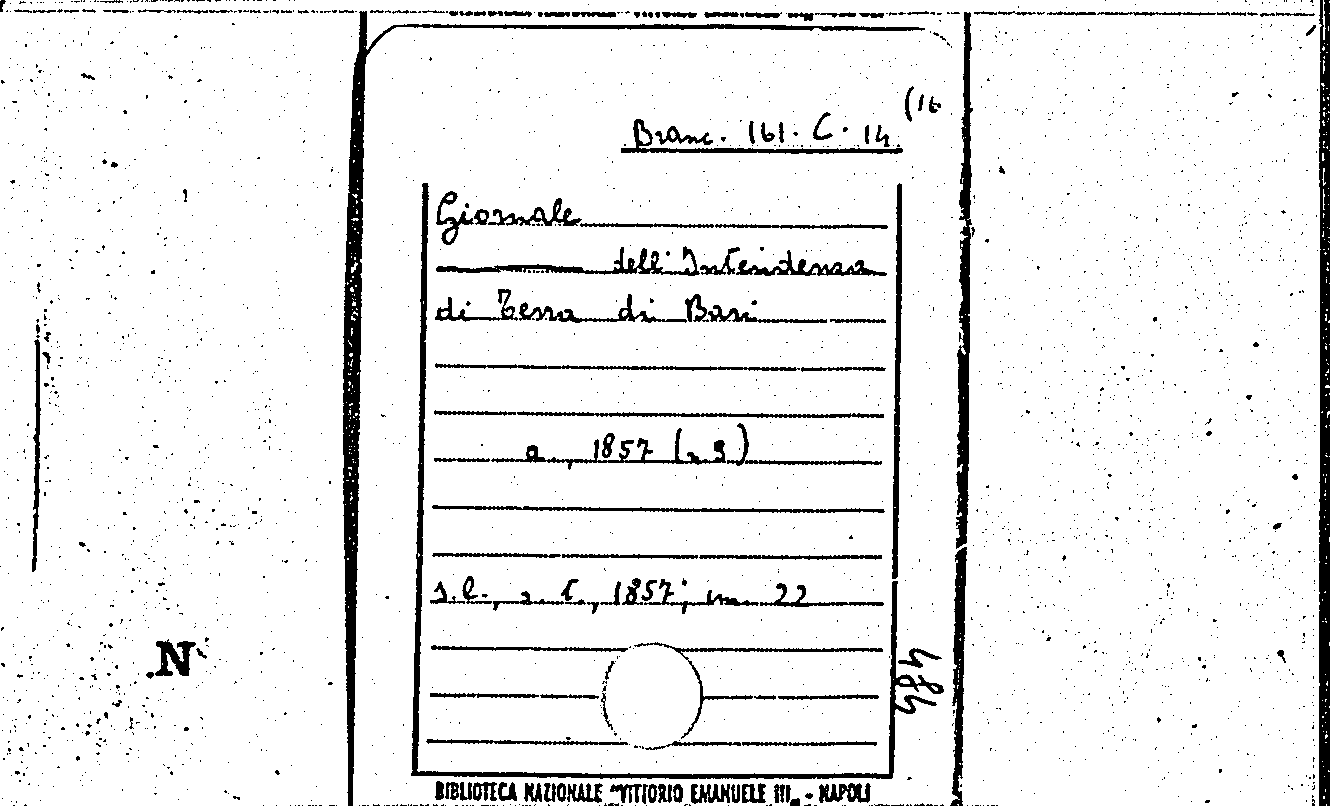 (16
Branc. 161. C. 14
Giornale
dell'Intendenza
di Terra di Bari
a., 1857 (n 9)
s.l., s. t., 1857; in. 22
N
BIBLIOTECA NAZIONALE "VITTORIO EMANUELE III„ - NAPOLI